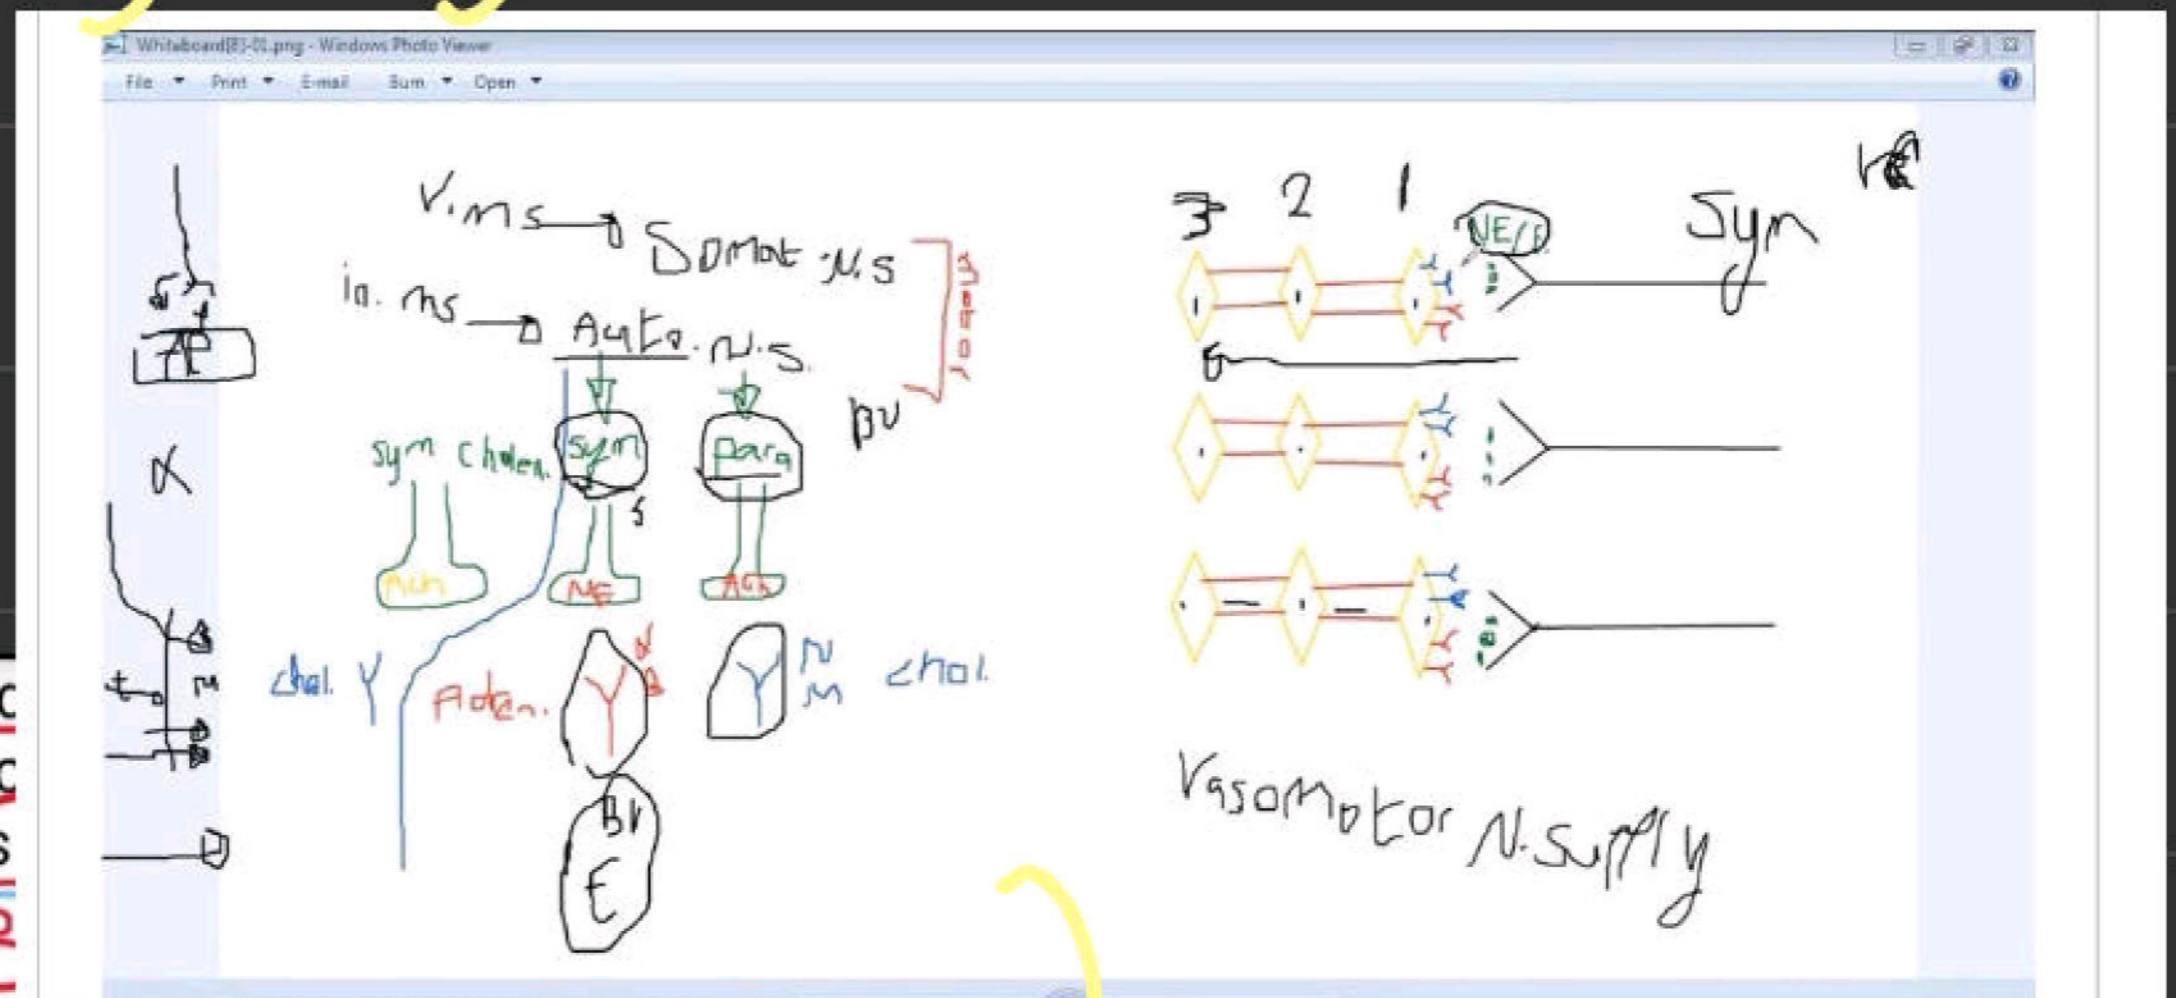 Whiteboard[8]-01.png - Windows Photo Viewer
File Print E-mail Burn Open
V.ms Somat. N.S
in. ms Auto. N.S.
BV
sym cholen. sym para
S
Ach NE Ach
chol. Adren. α β N M chol.
BV
E
AP
α
3 2 1 NE/E Sym
Vasomotor N. Supply